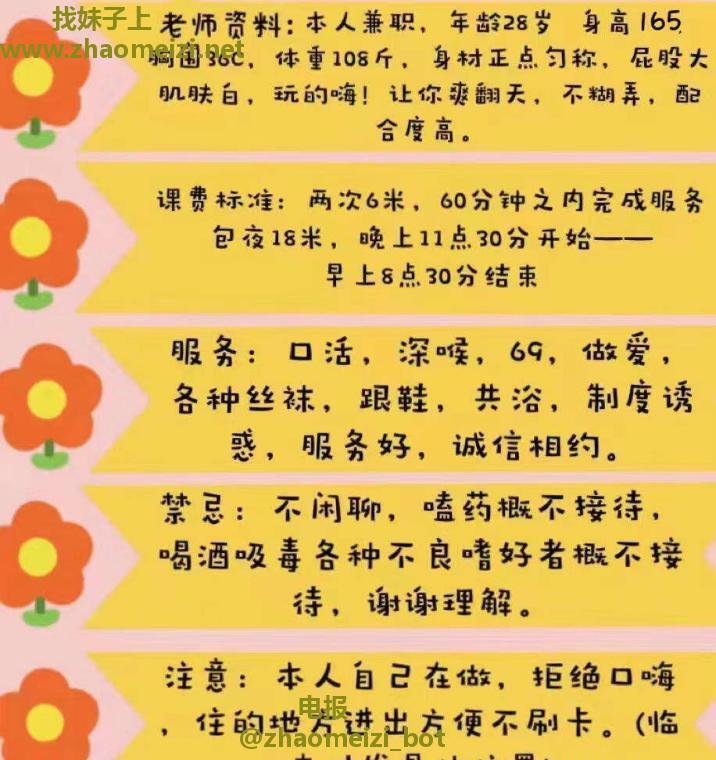 找妹子上
www.zhaomeizi.net
老师资料:本人兼职,年龄28岁 身高165
胸围36C,体重108斤,身材正点匀称,屁股大
肌肤白,玩的嗨!让你爽翻天,不糊弄,配
合度高。
课费标准:两次6米,60分钟之内完成服务
包夜18米,晚上11点30分开始——
早上8点30分结束
服务:口活,深喉,69,做爱,
各种丝袜,跟鞋,共浴,制度诱
惑,服务好,诚信相约。
禁忌:不闲聊,嗑药概不接待,
喝酒吸毒各种不良嗜好者概不接
待,谢谢理解。
注意:本人自己在做,拒绝口嗨
,住的地方进出方便不刷卡。(临
电报
@zhaomeizi_bot